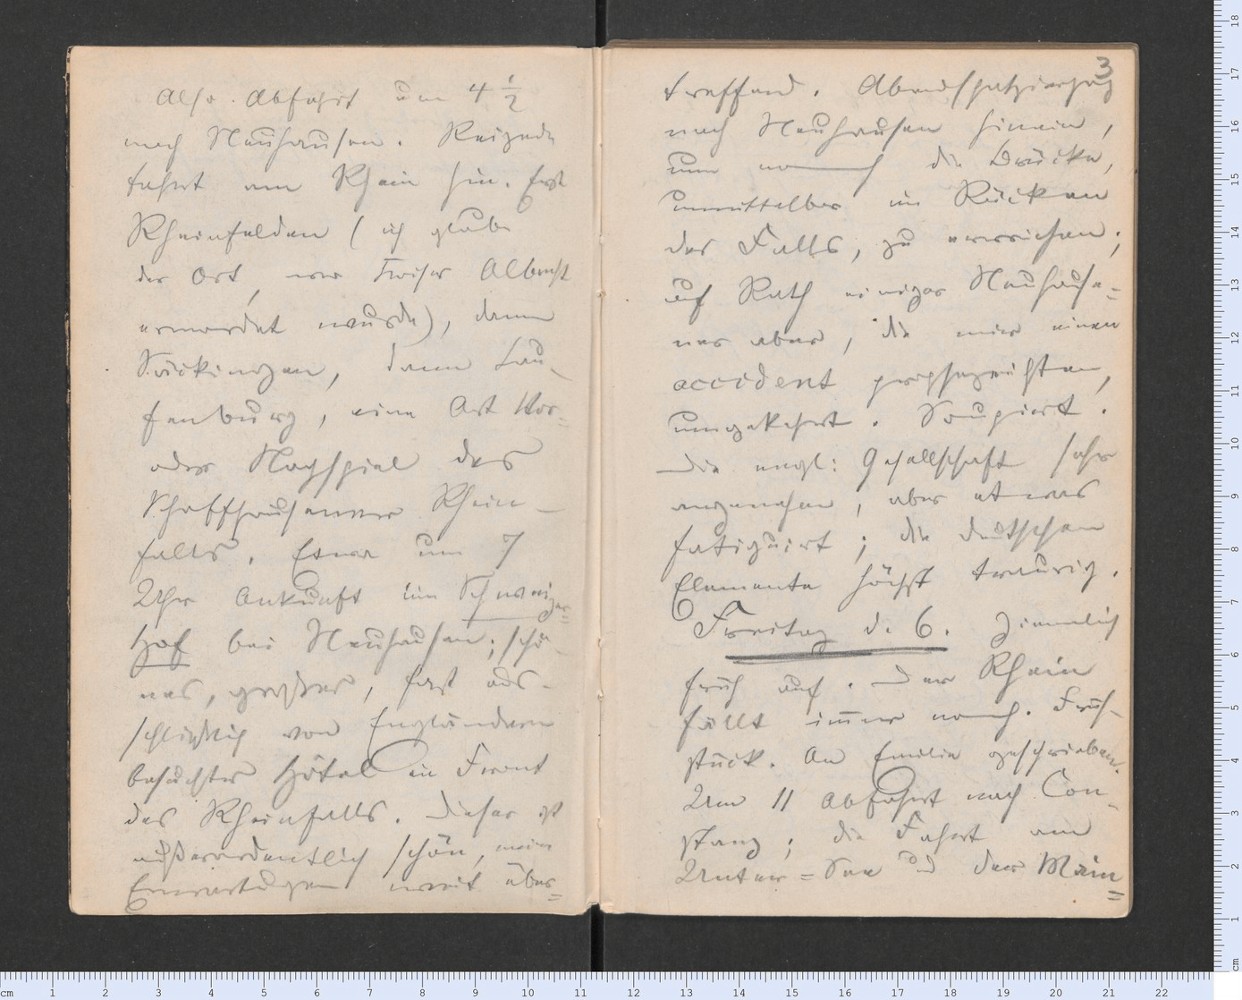 Also. Abfahrt um 4 1/2
nach Neuhausen. Reizende
Fahrt am Rhein hin. Erst
Rheinfelden (ich glaube
der Ort, wo Kaiser Albrecht
ermordet wurde), dann
Säckingen, dann Lau-
fenburg, eine Art Vor=
oder Nachspiel des
Schaffhausener Rhein-
falls. Etwa um 7
Uhr Ankunft im Schweizer=
Hof bei Neuhausen; schö-
nes, großes, fast aus-
schließlich von Engländern
besuchtes Hôtel in Front
des Rheinfalls. Dieser ist
außerordentlich schön, meine
Erwartungen weit über=
3
treffend. Abendspatziergang
nach Neuhausen hinein,
um noch die Brücke,
unmittelbar im Rücken
des Falls, zu erreichen;
auf Rath einiger Neuhause=
ner aber, die mir einen
accident prophezeihten,
umgekehrt. Soupirt.
Die engl: Gesellschaft sehr
angenehm, aber etwas
fatiguirt; die deutschen
Elemente höchst traurig.
Freitag d. 6. Ziemlich
früh auf. Der Rhein
fällt immer noch. Früh-
stück. An Emilie geschrieben.
Um 11 Abfahrt nach Con-
stanz; die Fahrt am
Unter=See und der Main=